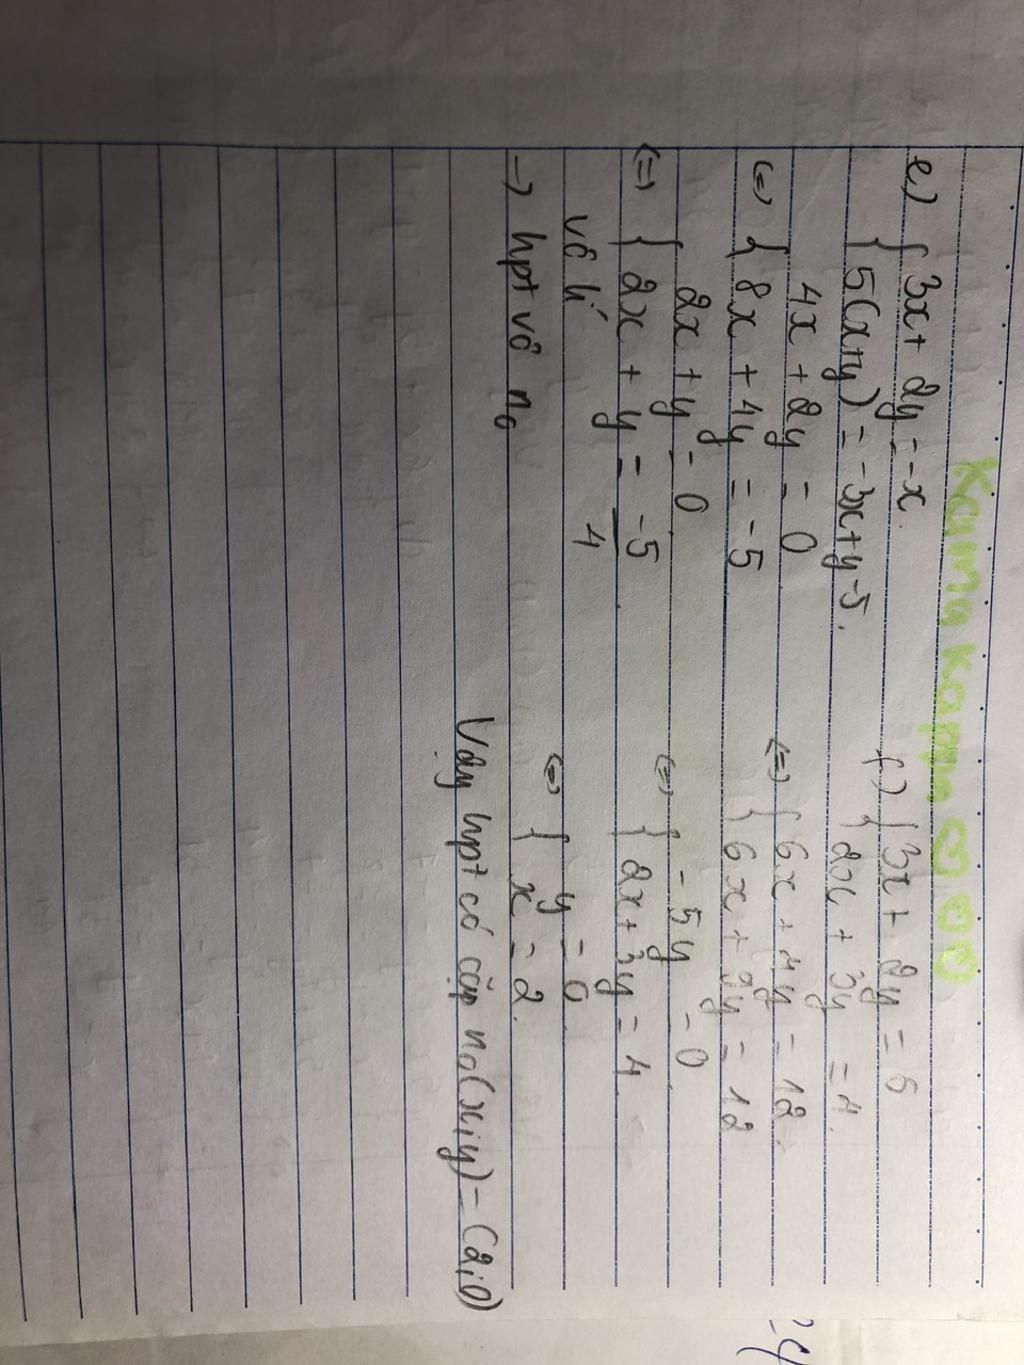 Kama Kappu
e) { 3x + 2y = -x.
{ 5(x+y) = -3x+y-5.
4x + 2y = 0
(=) { 8x + 4y = -5
2x + y = 0
(=) { 2x + y = -5/4
vô lí
→ hpt vô no
f) { 3x + 2y = 6
{ 2x + 3y = 4.
(=) { 6x + 4y = 12.
{ 6x + 9y = 12
(=) { -5y = 0
{ 2x + 3y = 4
(=) { y = 0
x = 2.
Vậy hpt có cặp no (x;y) = (2;0)